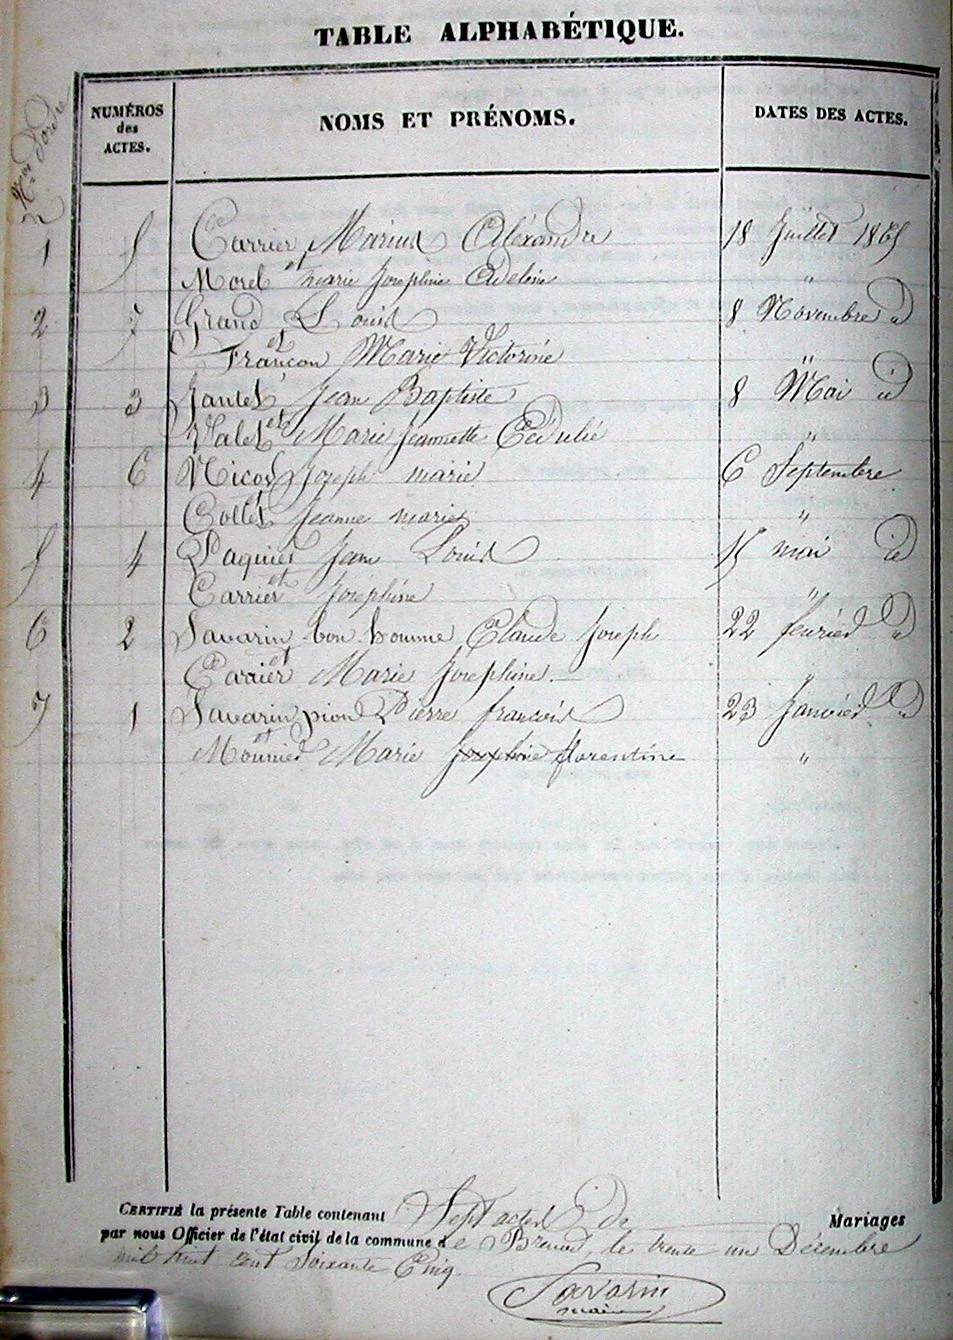 TABLE ALPHABÉTIQUE.
Nos d'ordre
NUMÉROS des ACTES.
NOMS ET PRÉNOMS.
DATES DES ACTES.
1 5 Carrier Marius Aléxandre 18 Juillet 1865
et
Morel marie Joséphine Adeline "
2 7 Grand Louis 8 Novembre id
et
Françon Marie Victorine "
3 3 Jantet Jean Baptiste 8 Mai id
et
Valet Marie Jeannette "
4 6 Nicod Joseph marie 6 Septembre
et
Collet Jeanne marie "
5 4 Paquier Jean Louis 15 mai id
et
Carrier Joséphine "
6 2 Savarin bon homme Claude Joseph 22 février id
et
Carrier Marie Joséphine "
7 1 Savarin pion Pierre françois 23 Janvier id
et
Mounier Marie Joséphine florentine "
CERTIFIÉ la présente Table contenant Sept actes de Mariages
par nous Officier de l'état civil de la commune de Brenod, le trente un Décembre
mil huit cent Soixante Cinq
Savarin
maire